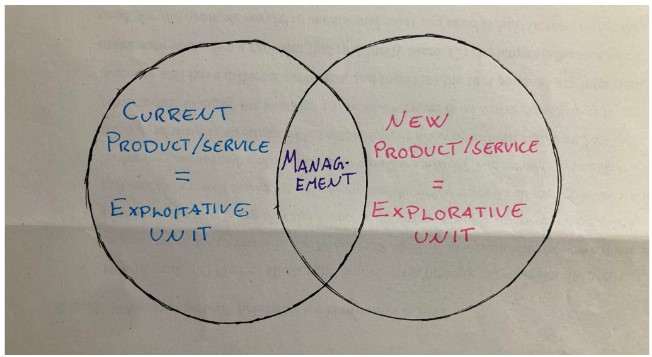 CURRENT
PRODUCT/SERVICE
=
EXPLOITATIVE
UNIT
MANAG-
EMENT
NEW
PRODUCT/SERVICE
=
EXPLORATIVE
UNIT